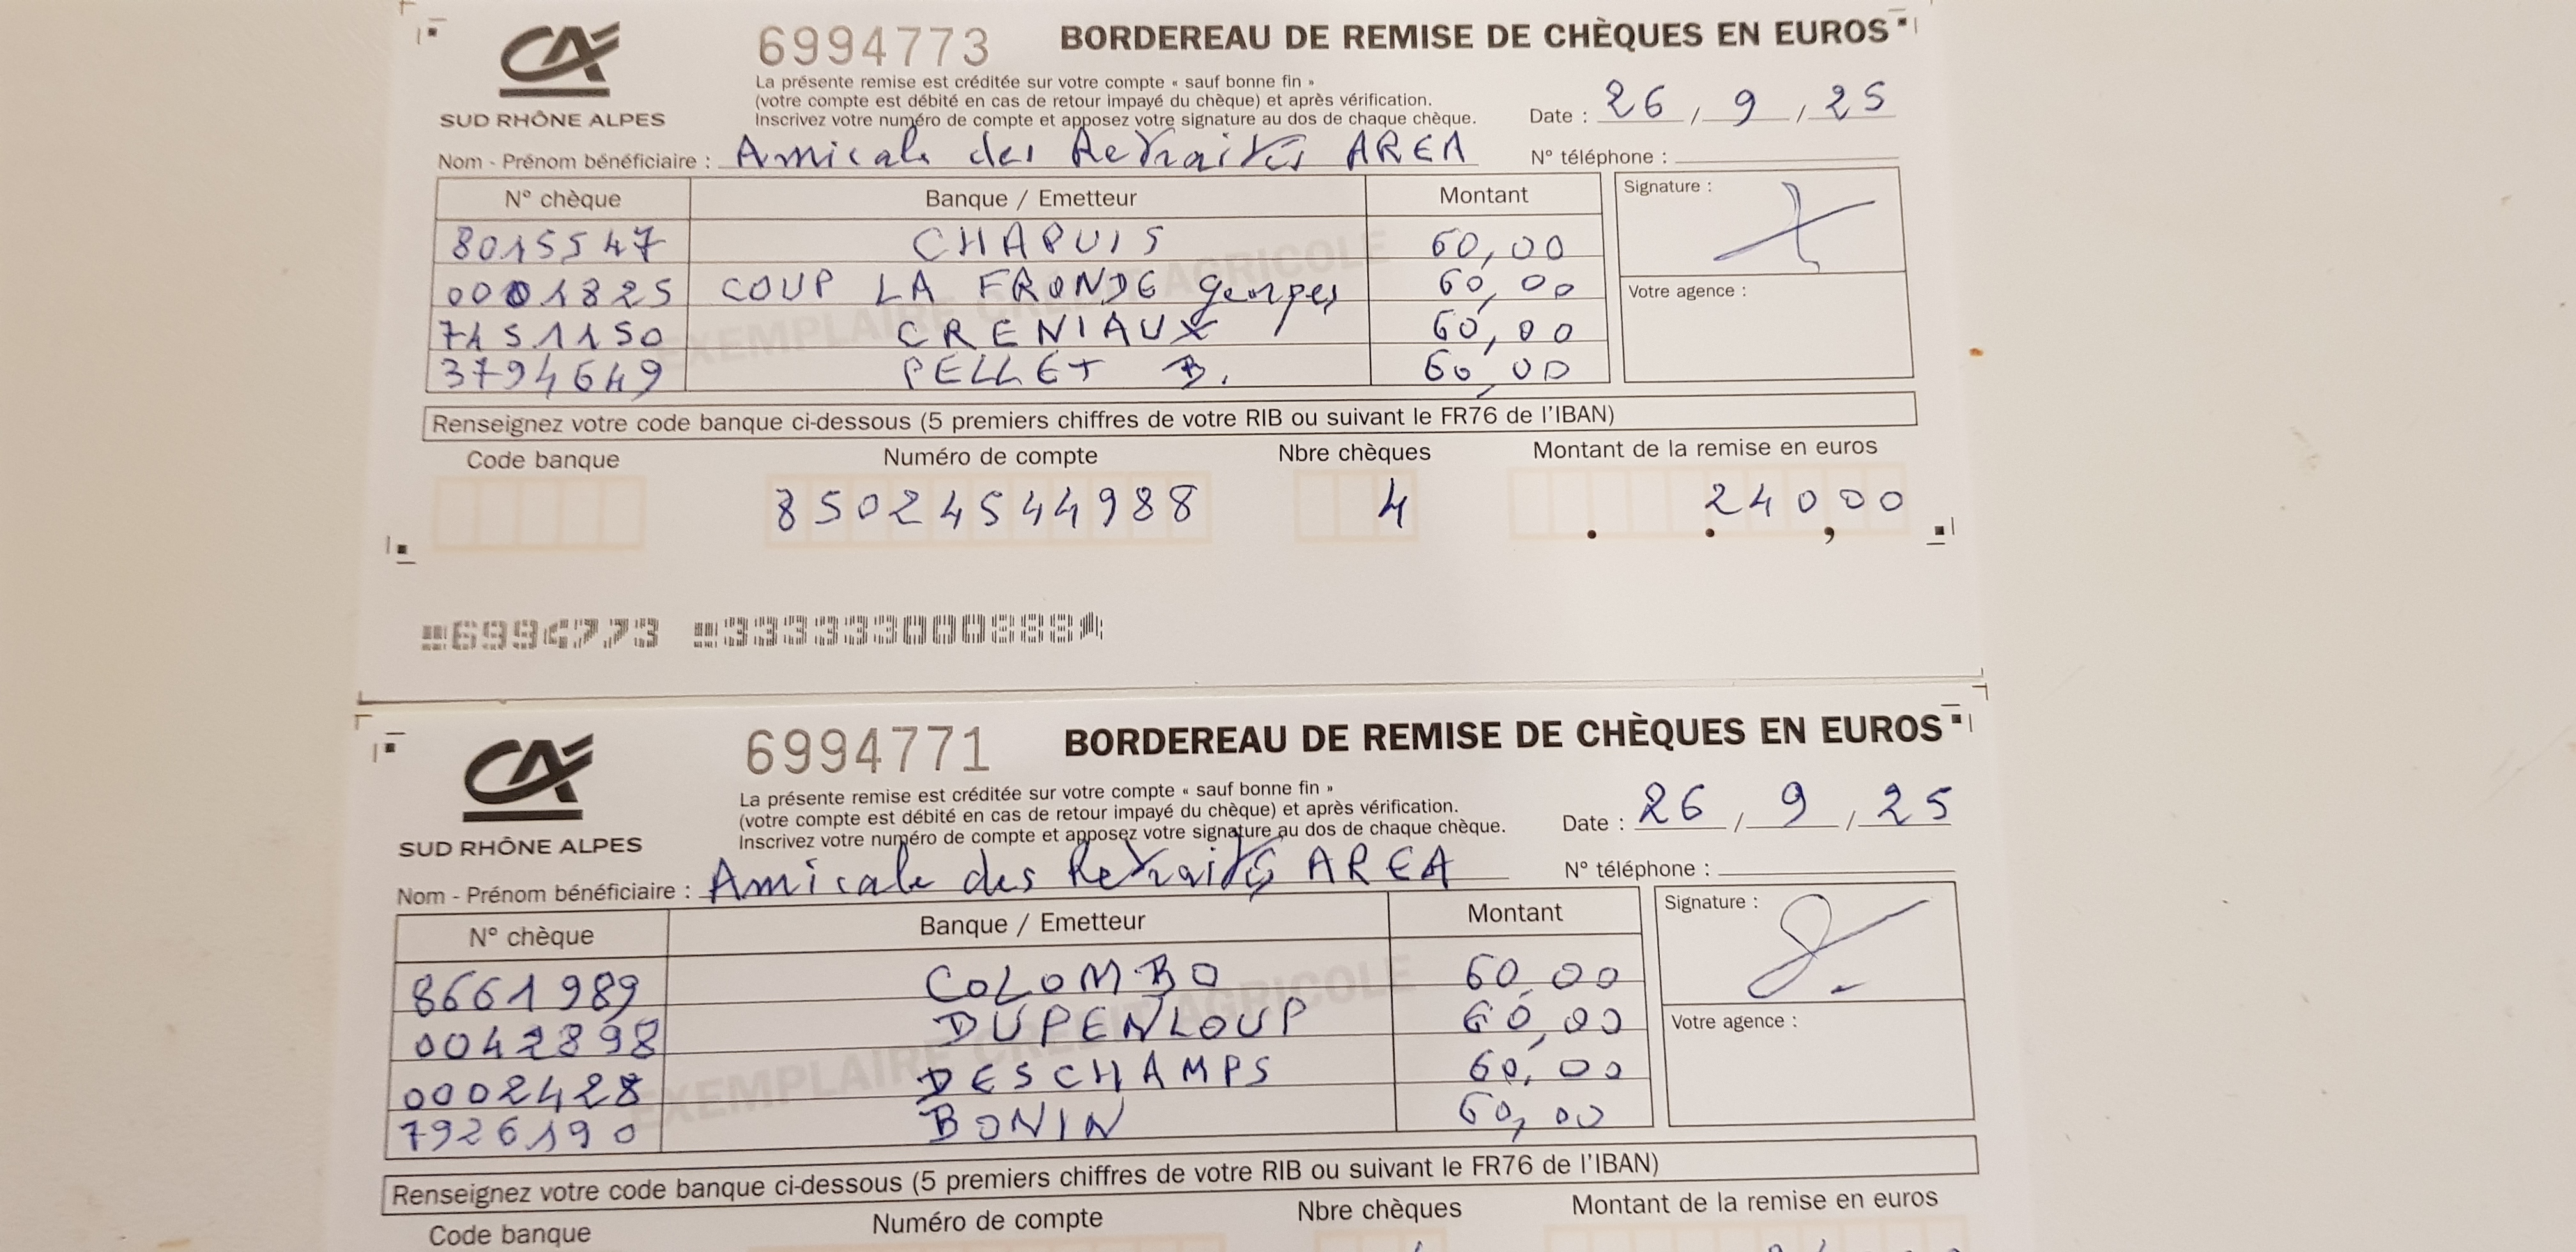 CA
SUD RHÔNE ALPES
6994773
BORDEREAU DE REMISE DE CHÈQUES EN EUROS
La présente remise est créditée sur votre compte « sauf bonne fin »
(votre compte est débité en cas de retour impayé du chèque) et après vérification.
Inscrivez votre numéro de compte et apposez votre signature au dos de chaque chèque.
Date : 26 / 9 / 25
Nom - Prénom bénéficiaire : Amicale des Retraités AREA
N° téléphone :
N° chèque Banque / Emetteur Montant
Signature :
8015547 CHAPUIS 60,00
0001825 COUP LA FRONDE Georges 60,00
Votre agence :
7451150 CRENIAUX 60,00
3794649 PELLET B. 60,00
EXEMPLAIRE CRÉDIT AGRICOLE
Renseignez votre code banque ci-dessous (5 premiers chiffres de votre RIB ou suivant le FR76 de l'IBAN)
Code banque Numéro de compte Nbre chèques Montant de la remise en euros
85024544988 4 240,00
6994773 333333000888
CA
SUD RHÔNE ALPES
6994771
BORDEREAU DE REMISE DE CHÈQUES EN EUROS
La présente remise est créditée sur votre compte « sauf bonne fin »
(votre compte est débité en cas de retour impayé du chèque) et après vérification.
Inscrivez votre numéro de compte et apposez votre signature au dos de chaque chèque.
Date : 26 / 9 / 25
Nom - Prénom bénéficiaire : Amicale des Retraités AREA
N° téléphone :
N° chèque Banque / Emetteur Montant
Signature :
8661989 COLOMBO 60,00
0042898 DUPENLOUP 60,00
Votre agence :
0002428 DESCHAMPS 60,00
7926190 BONIN 60,00
EXEMPLAIRE CRÉDIT AGRICOLE
Renseignez votre code banque ci-dessous (5 premiers chiffres de votre RIB ou suivant le FR76 de l'IBAN)
Code banque Numéro de compte Nbre chèques Montant de la remise en euros